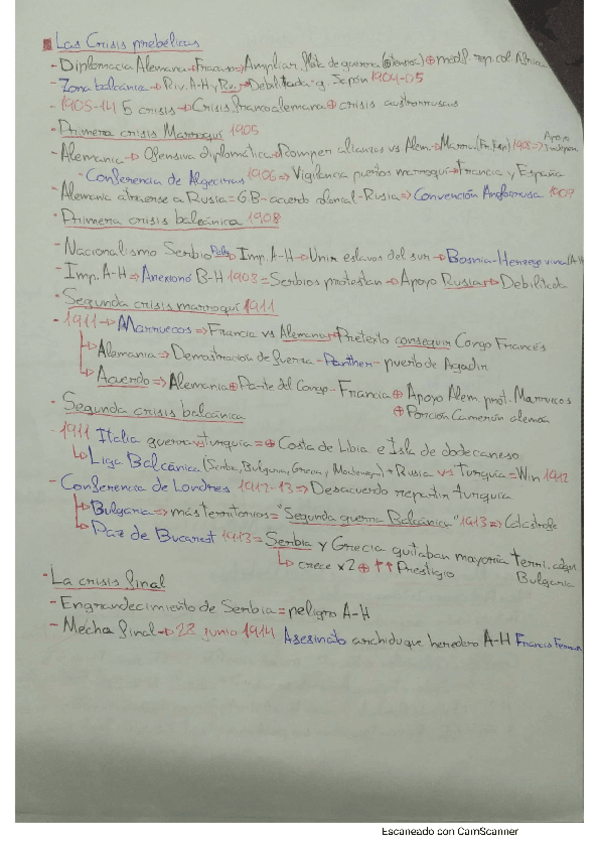 Las Crisis prebélicas
- Diplomacia Alemana → Fracaso → Ampliar flota de guerra ⊕ modif. rep. col. África
- Zona balcánica → Riv. A-H y Ru. → Debilitada → g. Japón 1904-05
- 1905-14 5 crisis → Crisis francoalemana ⊕ crisis austrorrusas
- Primera crisis Marroquí 1905
- Alemania → Ofensiva diplomática → Romper alianzas vs Alem. → Marru. ⇒ Apoyo Indepen.
- Conferencia de Algeciras 1906 ⇒ Vigilancia puertos marroquí → Francia y España
- Alemania atraerse a Rusia = GB - acuerdo colonial - Rusia ⇒ Convención Anglorusa 1907
- Primera crisis balcánica 1908
- Nacionalismo Serbio → Imp. A-H → Unir eslavos del sur → Bosnia-Herzegovina (A-H)
- Imp. A-H ⇒ Anexionó B-H 1908 = Serbios protestan → Apoyo Rusia → Debilitada
- Segunda crisis marroquí 1911
- 1911 → Marruecos ⇒ Francia vs Alemania → Pretexto conseguir Congo Francés
↳ Alemania ⇒ Demostración de fuerza - Panther - puerto de Agadir
↳ Acuerdo ⇒ Alemania ⊕ Parte del Congo - Francia ⊕ Apoyo Alem. prot. Marruecos
⊕ Porción Camerún alemán
- Segunda crisis balcánica
- 1911 Italia guerra vs turquía = ⊕ Costa de Libia e Isla de dodecaneso
↳ Liga Balcánica (Serbia, Bulgaria, Grecia y Montenegro) + Rusia vs Turquía = Win 1912
- Conferencia de Londres 1912-13 ⇒ Desacuerdo repartir turquía
↳ Bulgaria ⇒ más territorios = "Segunda guerra Balcánica" 1913 ⇒ Catástrofe
↳ Paz de Bucarest 1913 = Serbia y Grecia quitaban mayoría terri.
Bulgaria
↳ crece x2 ⊕ ↑↑ Prestigio
- La crisis final
- Engrandecimiento de Serbia = peligro A-H
- Mecha final → 28 junio 1914 Asesinato archiduque heredero A-H
Escaneado con CamScanner